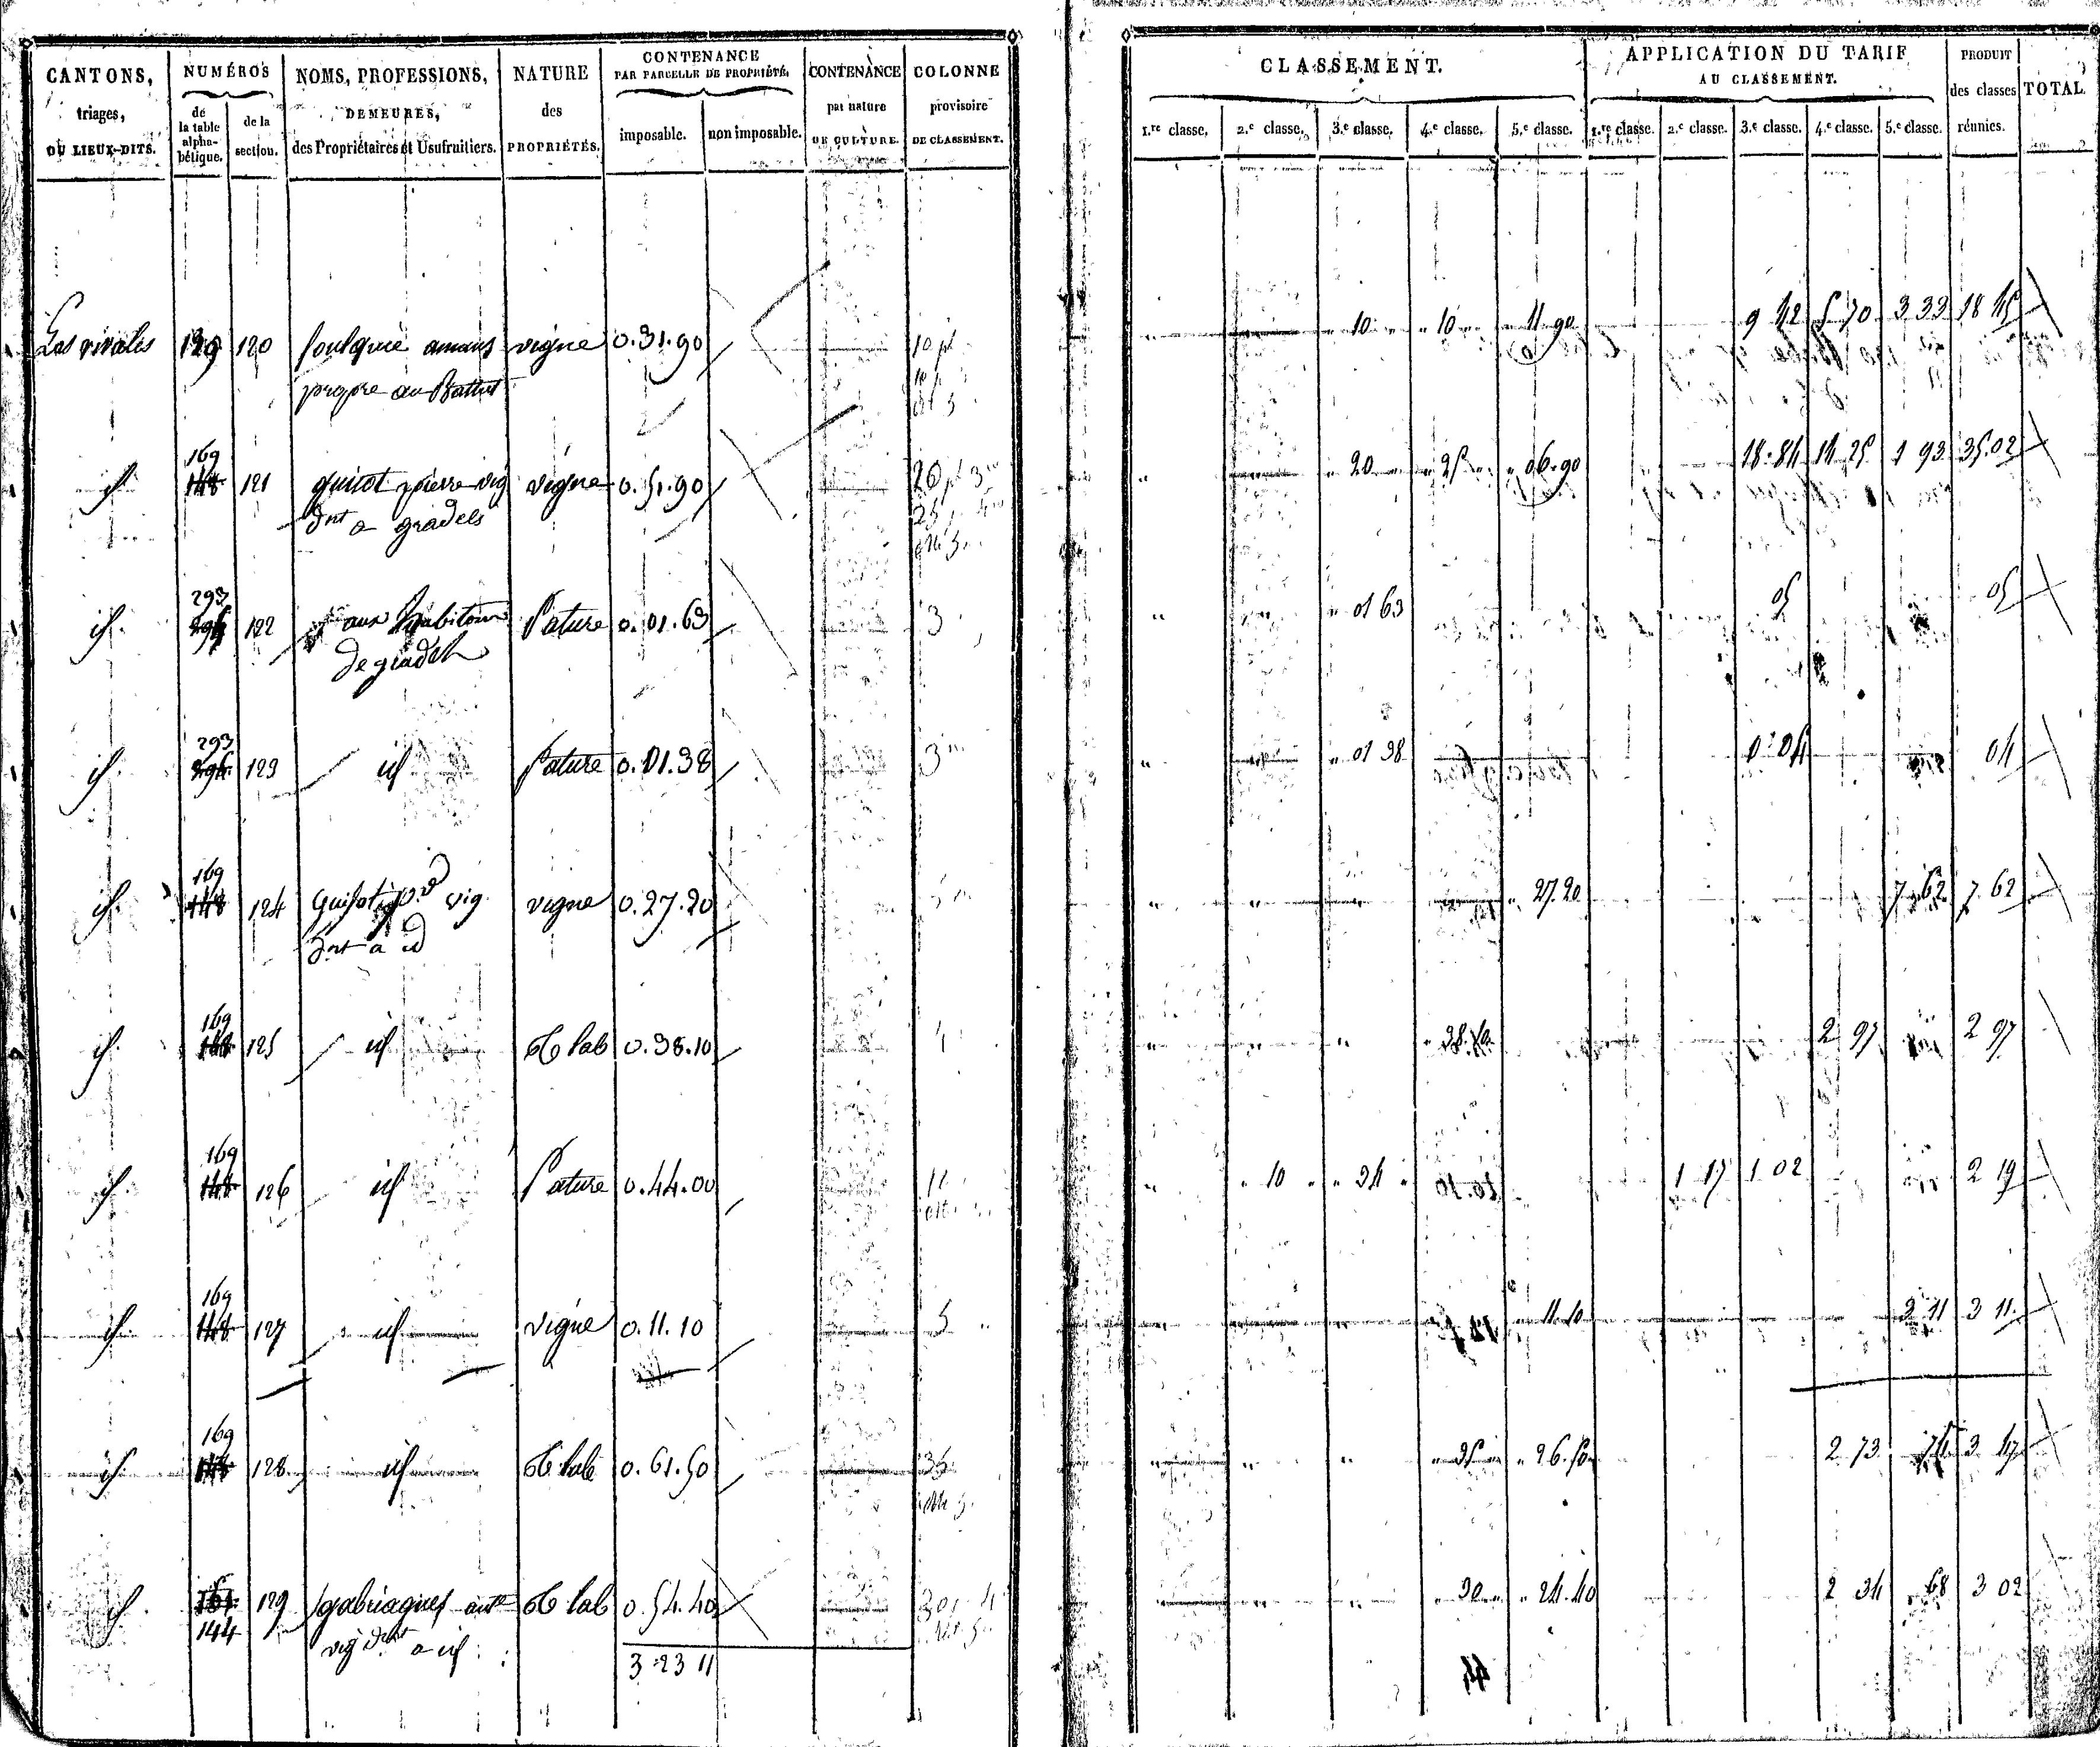 CANTONS, triages, OU LIEUX-DITS. | NUMÉROS de la table alphabétique. | de la section. | NOMS, PROFESSIONS, DEMEURES, des Propriétaires et Usufruitiers. | NATURE des PROPRIÉTÉS. | CONTENANCE PAR PARCELLE DE PROPRIÉTÉ. imposable. | non imposable. | CONTENANCE par nature DE CULTURE. | COLONNE provisoire DE CLASSEMENT. | CLASSEMENT. 1.re classe. | 2.e classe. | 3.e classe. | 4.e classe. | 5.e classe. | APPLICATION DU TARIF AU CLASSEMENT. 1.re classe. | 2.e classe. | 3.e classe. | 4.e classe. | 5.e classe. | PRODUIT des classes réunies. | TOTAL.
Las rivales 129 120 foulquié amans vigne 0.31.90 10 10 11.90 9 42 5 70 3 33 18 45
propre au Battut
id. 169 148 121 guitot pierre vig vigne 0.51.90 20 25 06.90 18.84 14 25 1 93 35.02
dnt a gradels
id. 293 122 aux habitans Pature 0.01.63 3 01 63 05 05
de gradels
id. 293 123 id Pature 0.01.38 3 01 38 0.04 04
id. 169 148 124 vig. vigne 0.27.20 27.20 7.62 7 62
dnt a id
id. 169 148 125 id lab 0.38.10 38.10 2 97 2 97
id. 169 148 126 id Pature 0.44.00 10 34 1 17 1 02 2 19
id. 169 148 127 id vigne 0.11.10 5 11.10 3 11 3 11
id. 169 148 128 id lab 0.61.50 35 35 26.50 2 73 74 3 47
id. 144 129 gabriagues lab 0.54.40 30 30 24.40 2 34 68 3 02
vig dnt a id
3 23 11